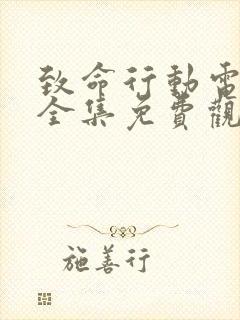 致命行動電
全集免費觀
施善行